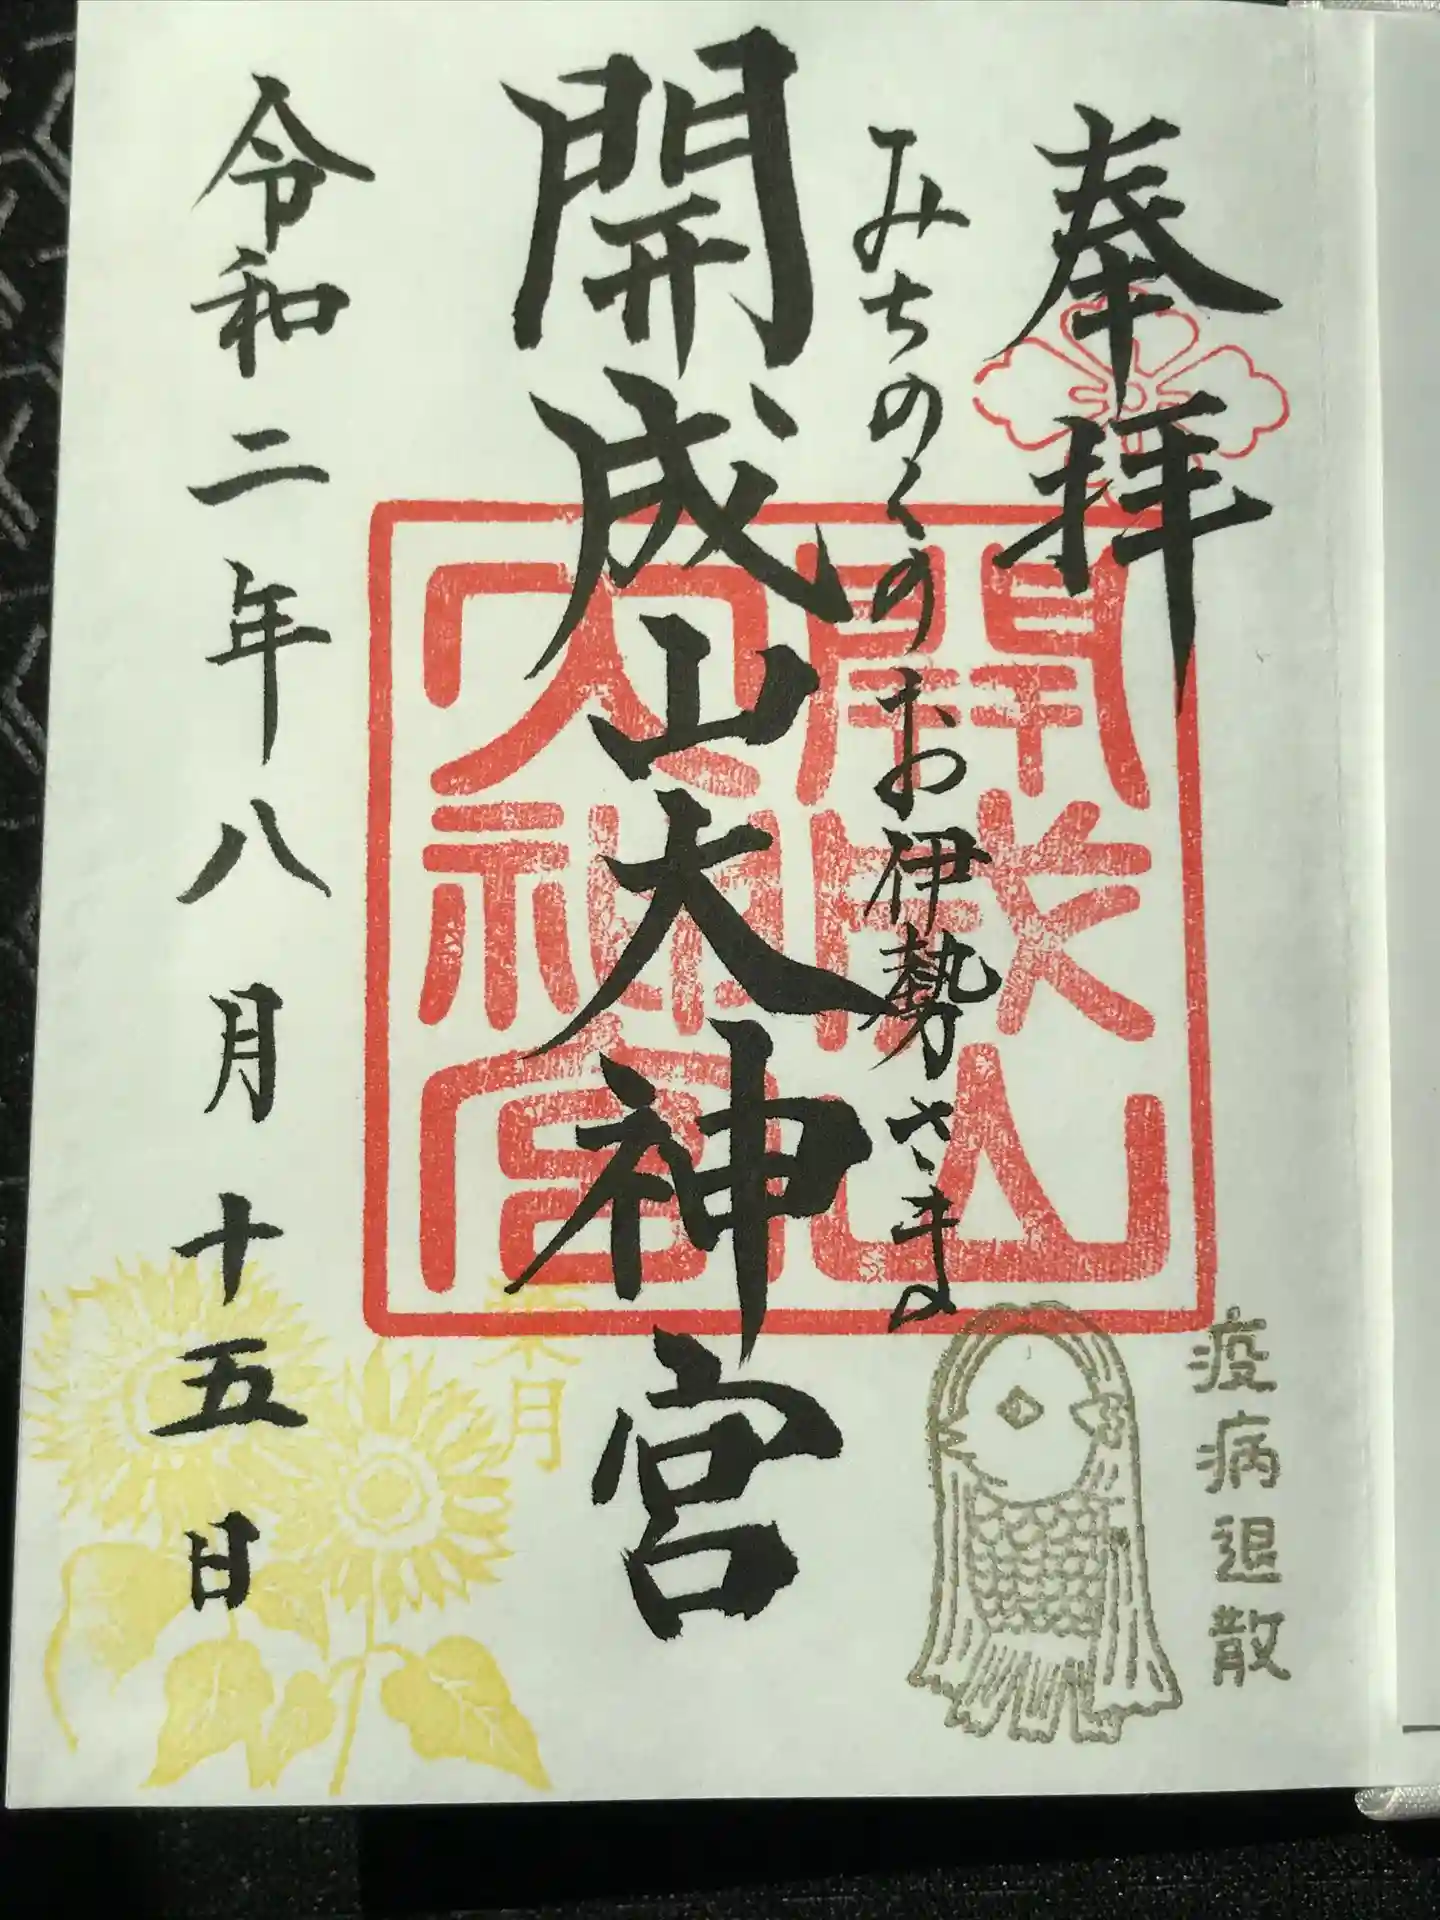 奉拝
みちのくのお伊勢さま
開成山大神宮
令和二年八月十五日
開成山
大神宮
疫病退散
葉月